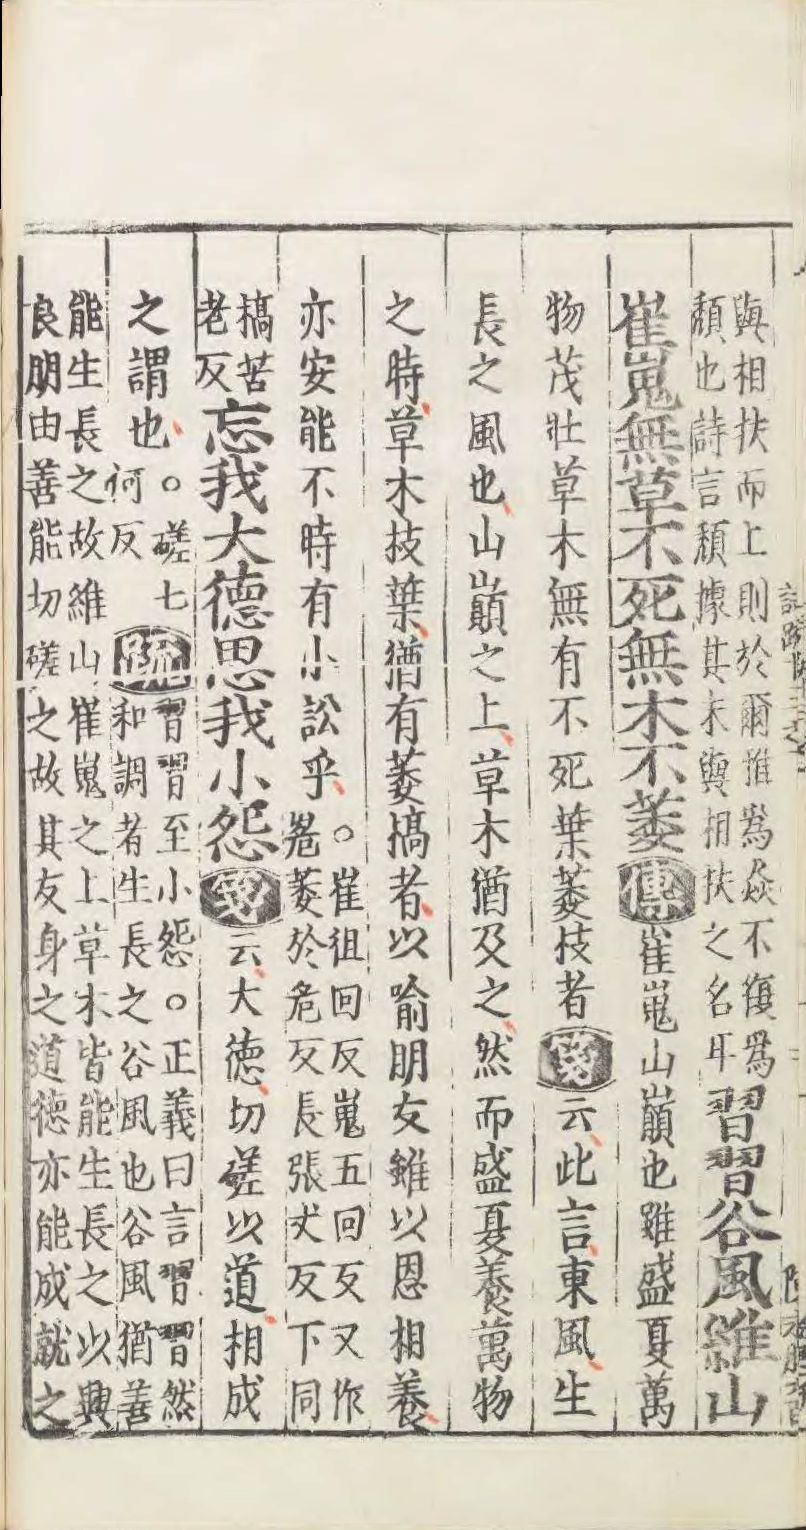 與相扶而上則於爾雅爲猋不復爲
頹也詩言頹據其末與相扶之名耳
習習谷風維山
崔嵬無草不死無木不萎傳崔嵬山巔也雖盛夏萬
物茂壯草木無有不死葉萎技者箋云此言東風生
長之風也山巔之上草木猶及之然而盛夏養萬物
之時草木技葉猶有萎槁者以喻朋友雖以恩相養
亦安能不時有小訟乎
○崔徂回反嵬五回反又作
峞萎於危反長張丈反下同
槁苦
老反
忘我大德思我小怨箋云大德切磋以道相成
之謂也
○磋七
何反
疏
習習至小怨○正義曰言習習然
和調者生長之谷風也谷風猶善
能生長之故維山崔嵬之上草木皆能生長之以興
良朋由善能切磋之故其友身之道德亦能成就之